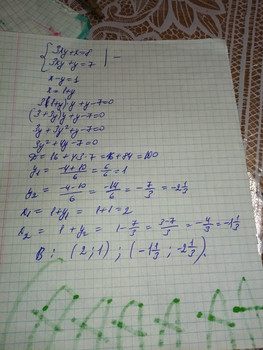 { 3xy+x=8
3xy+y=7 | -
x-y=1
x=1+y
3(1+y)y+y-7=0
(3+3y)y+y-7=0
3y+3y²+y-7=0
3y²+4y-7=0
D=16+4·3·7=16+84=100
y₁ = (-4+10)/6 = 6/6 = 1
y₂ = (-4-10)/6 = -14/6 = -7/3 = -2 1/3
x₁ = 1+y₁ = 1+1=2
x₂ = 1+y₂ = 1-7/3 = (3-7)/3 = -4/3 = -1 1/3
В: (2;1); (-1 1/3; -2 1/3).